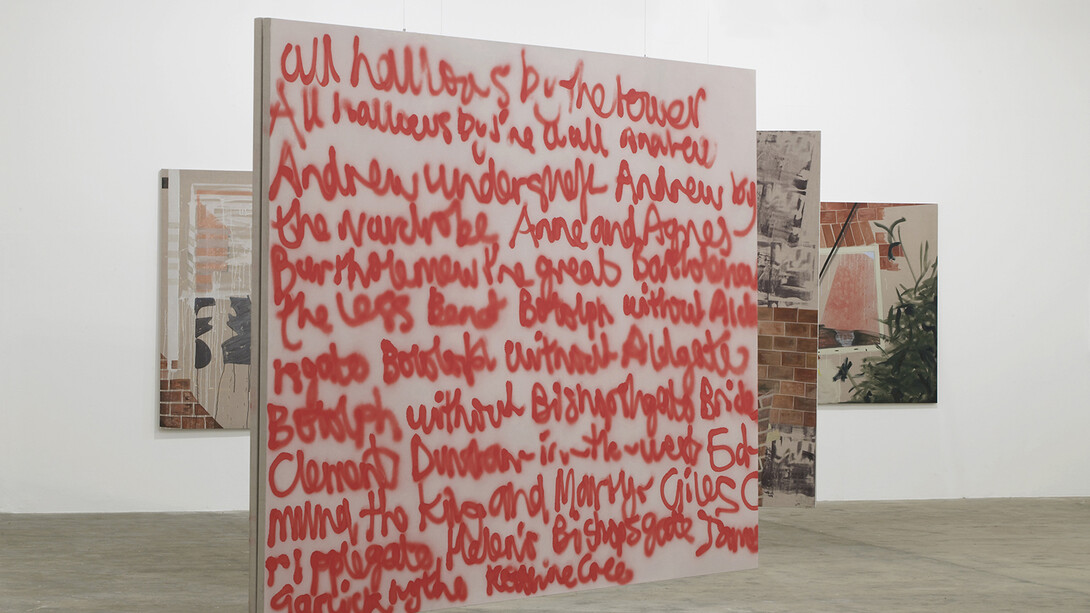 all hallows by the tower
All hallows by the wall Andrew
Andrew undershaft Andrew by
the wardrobe Anne and Agnes
Bartholemew the great Bartholemew
the Less Benet Botolph without Alde
rsgate Botolph without Aldgate
Botolph without Bishopsgate Bride
Clement Dunstan-in-the-west Ed
mund the King and Martyr Giles C
ripplegate Helen's Bishopsgate James
Garlickhythe Katherine Cree